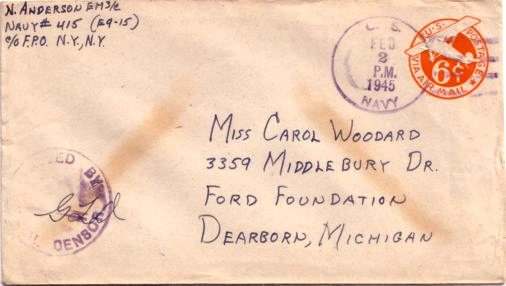 N. ANDERSON EM3/c
NAVY# 415 (E9-15)
c/o F.P.O. N.Y., N.Y.
U. S.
FEB
2
P.M.
1945
NAVY
U.S. POSTAGE
6¢
VIA AIR MAIL
MISS CAROL WOODARD
3359 MIDDLEBURY DR.
FORD FOUNDATION
DEARBORN, MICHIGAN
BY